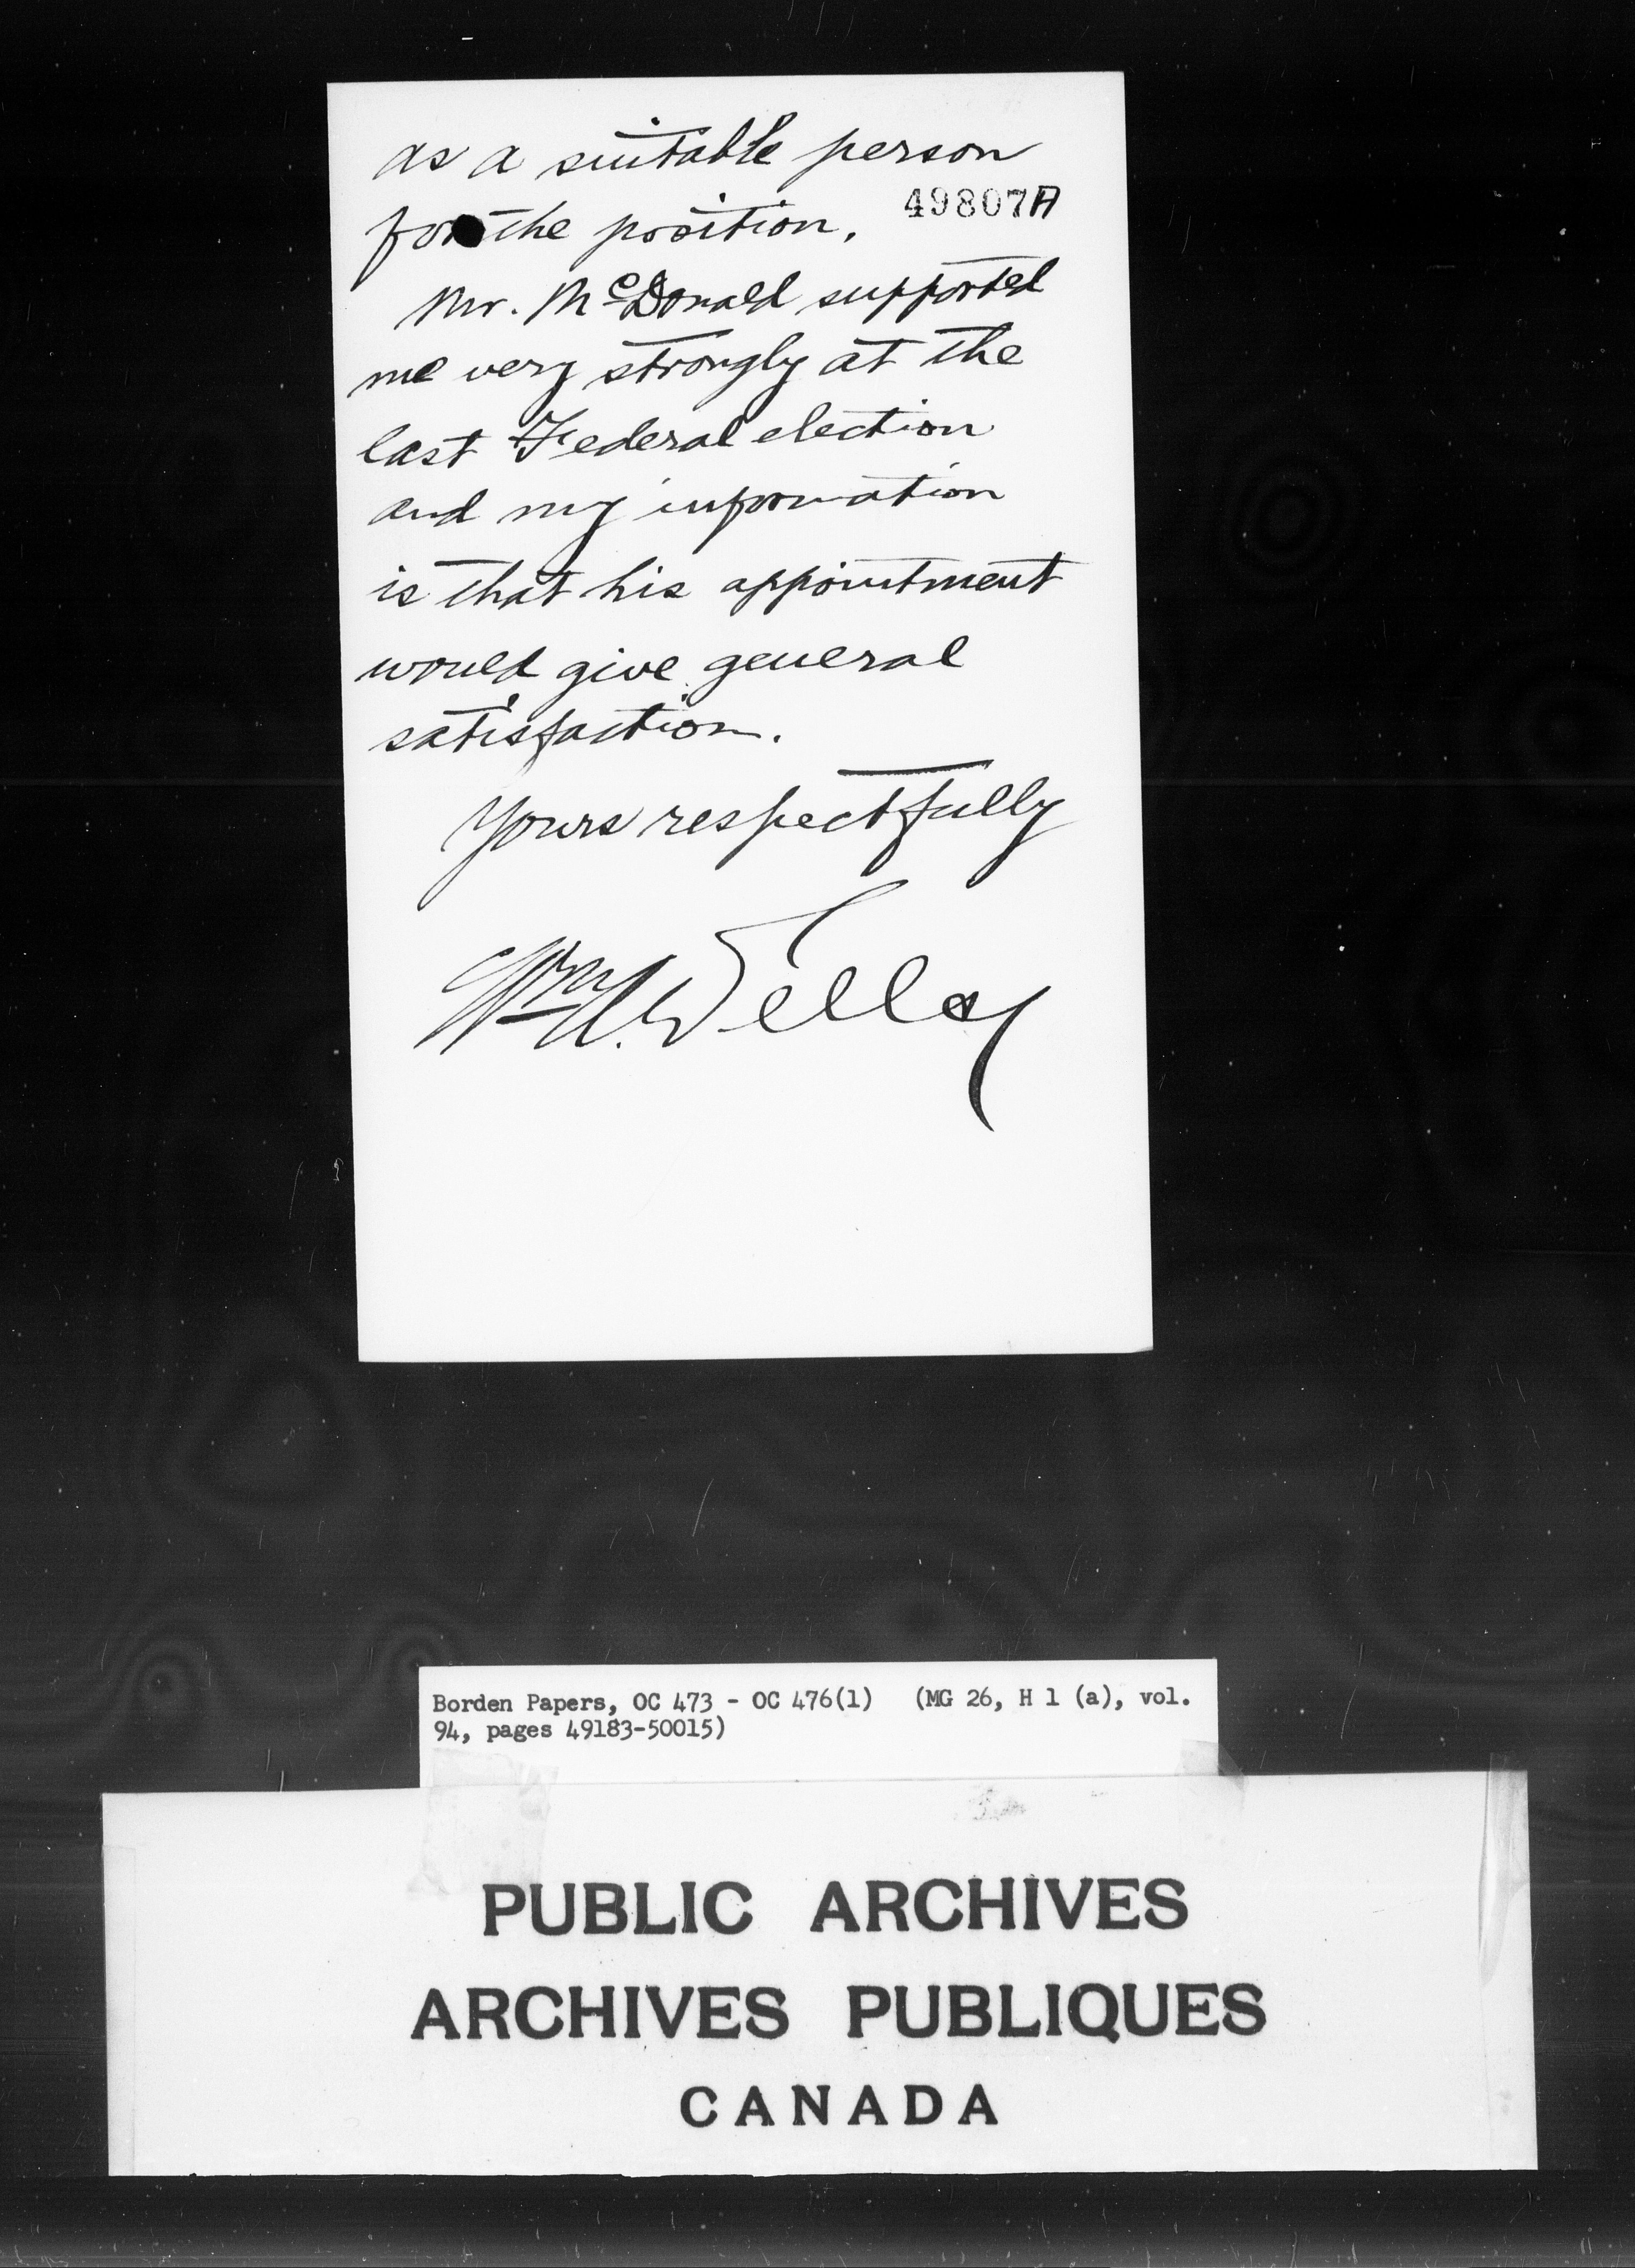 as a suitable person
49807A
for the position.
Mr. McDonald supported
me very strongly at the
last Federal election
and my information
is that his appointment
would give general
satisfaction.
Yours respectfully
Wm
Borden Papers, OC 473 - OC 476(1) (MG 26, H 1 (a), vol.
94, pages 49183-50015)
PUBLIC ARCHIVES
ARCHIVES PUBLIQUES
CANADA